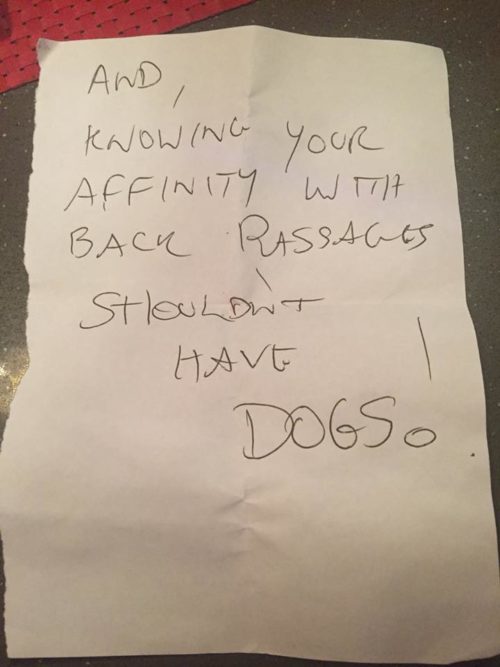 AND,
KNOWING YOUR
AFFINITY WITH
BACK PASSAGES
SHOULDN'T
HAVE
DOGS!